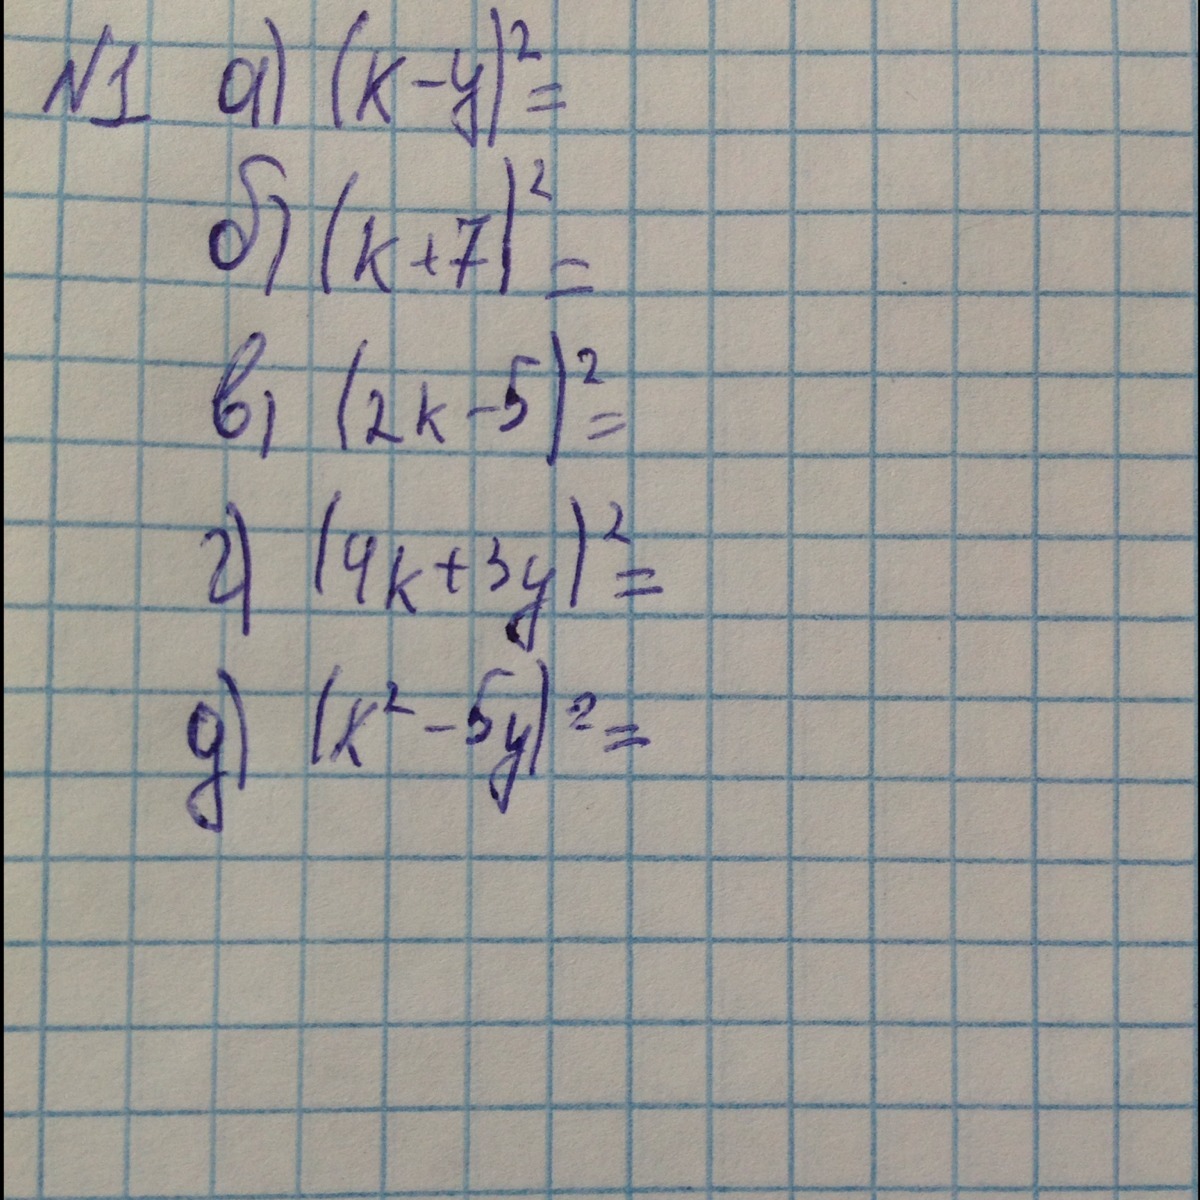 №1 а) (k-y)²=
б) (k+7)²=
в) (2k-5)²=
г) (4k+3y)²=
д) (k²-5y)²=